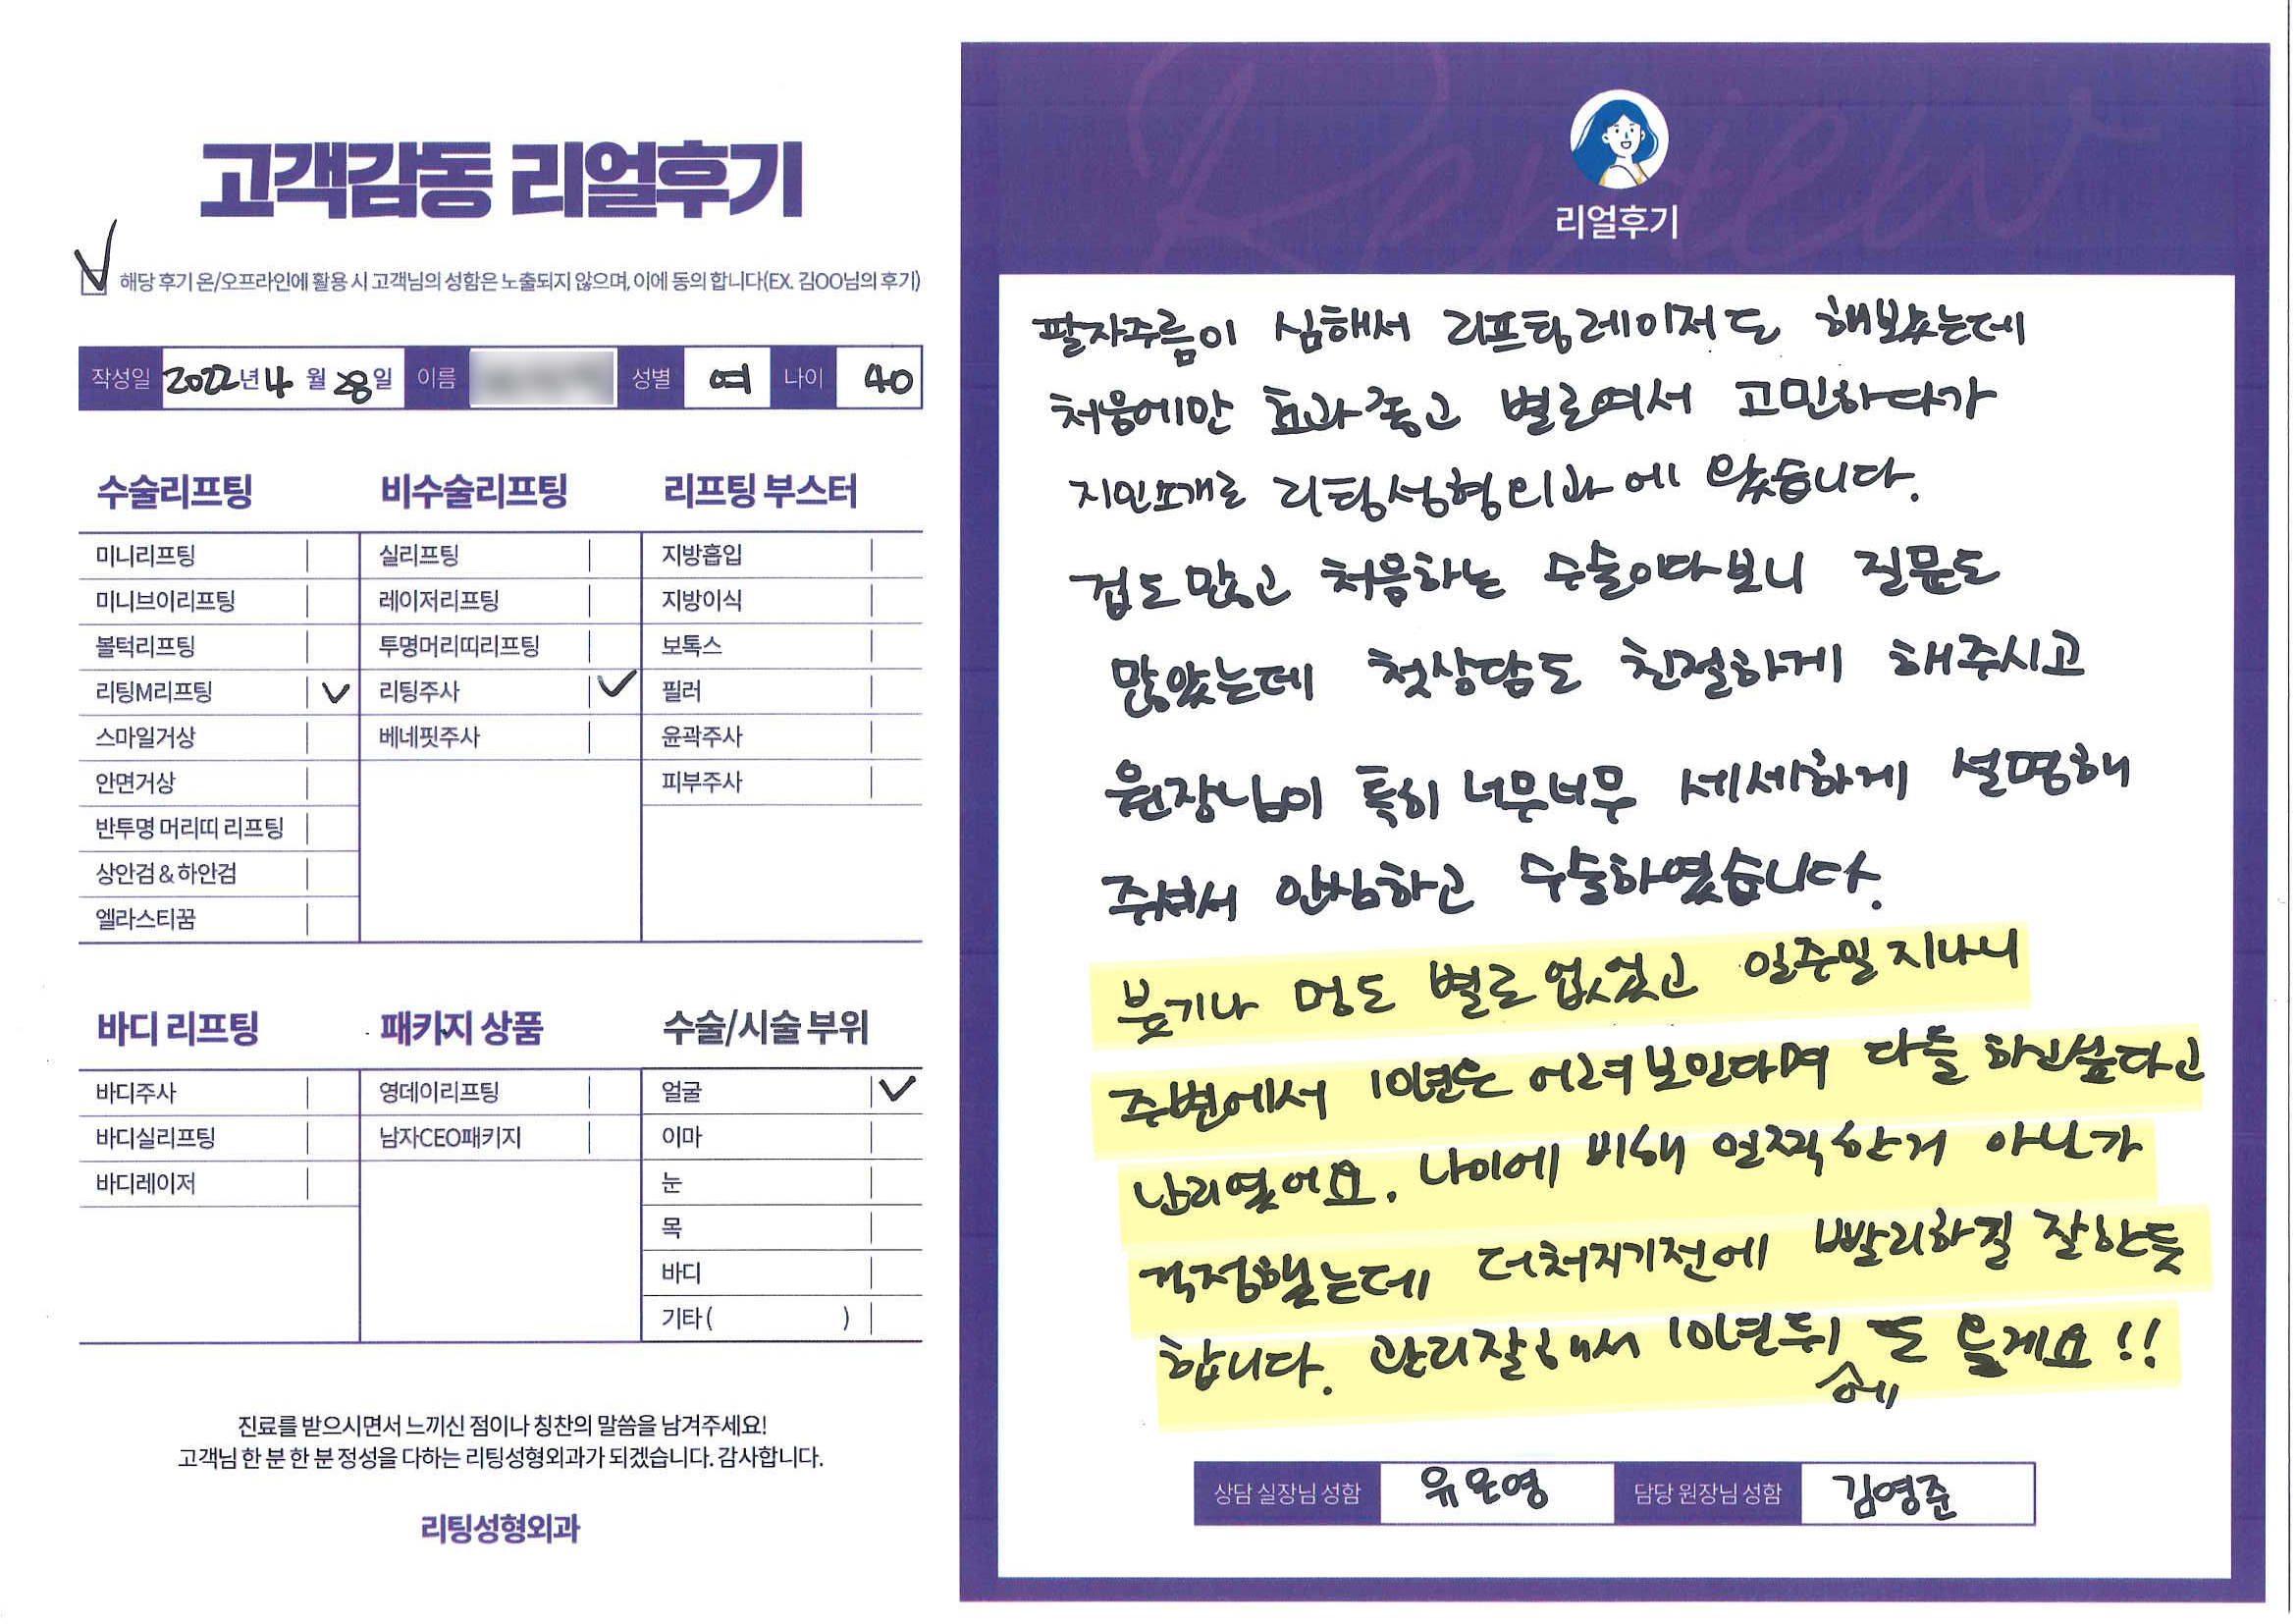 고객감동 리얼후기
해당 후기 온/오프라인에 활용 시 고객님의 성함은 노출되지 않으며, 이에 동의 합니다(EX. 김OO님의 후기)
작성일 2022년 4월 28일 이름 성별 여 나이 40
수술리프팅
미니리프팅
미니브이리프팅
볼턱리프팅
리팅M리프팅
스마일거상
안면거상
반투명 머리띠 리프팅
상안검 & 하안검
엘라스티꿈
비수술리프팅
실리프팅
레이저리프팅
투명머리띠리프팅
리팅주사
베네핏주사
리프팅 부스터
지방흡입
지방이식
보톡스
필러
윤곽주사
피부주사
바디 리프팅
바디주사
바디실리프팅
바디레이저
패키지 상품
영데이리프팅
남자CEO패키지
수술/시술 부위
얼굴
이마
눈
목
바디
기타 ( )
진료를 받으시면서 느끼신 점이나 칭찬의 말씀을 남겨주세요!
고객님 한 분 한 분 정성을 다하는 리팅성형외과가 되겠습니다. 감사합니다.
리팅성형외과
Review
리얼후기
팔자주름이 심해서 리프팅레이저도 해봤는데
처음에만 효과좋고 별로여서 고민하다가
지인소개로 리팅성형외과에 왔습니다.
겁도 많고 처음하는 수술이다보니 질문도
많았는데 첫상담도 친절하게 해주시고
원장님이 특히 너무너무 세세하게 설명해
주셔서 안심하고 수술하였습니다.
붓기나 멍도 별로 없었고 일주일 지나니
주변에서 10년은 어려보인다며 다들 하고싶다고
난리였어요. 나이에 비해 일찍한거 아닌가
걱정했는데 더처지기전에 빨리하길 잘한듯
합니다. 관리잘해서 10년뒤에 또 올게요!!
상담 실장님 성함 유은영 담당 원장님 성함 김영준